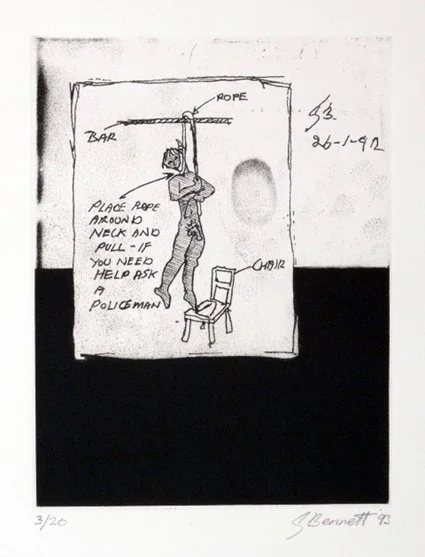 ROPE
BAR
GB.
26-1-92
PLACE ROPE
AROUND
NECK AND
PULL - IF
YOU NEED
HELP ASK
A
POLICEMAN
CHAIR
3/20
G Bennett '93